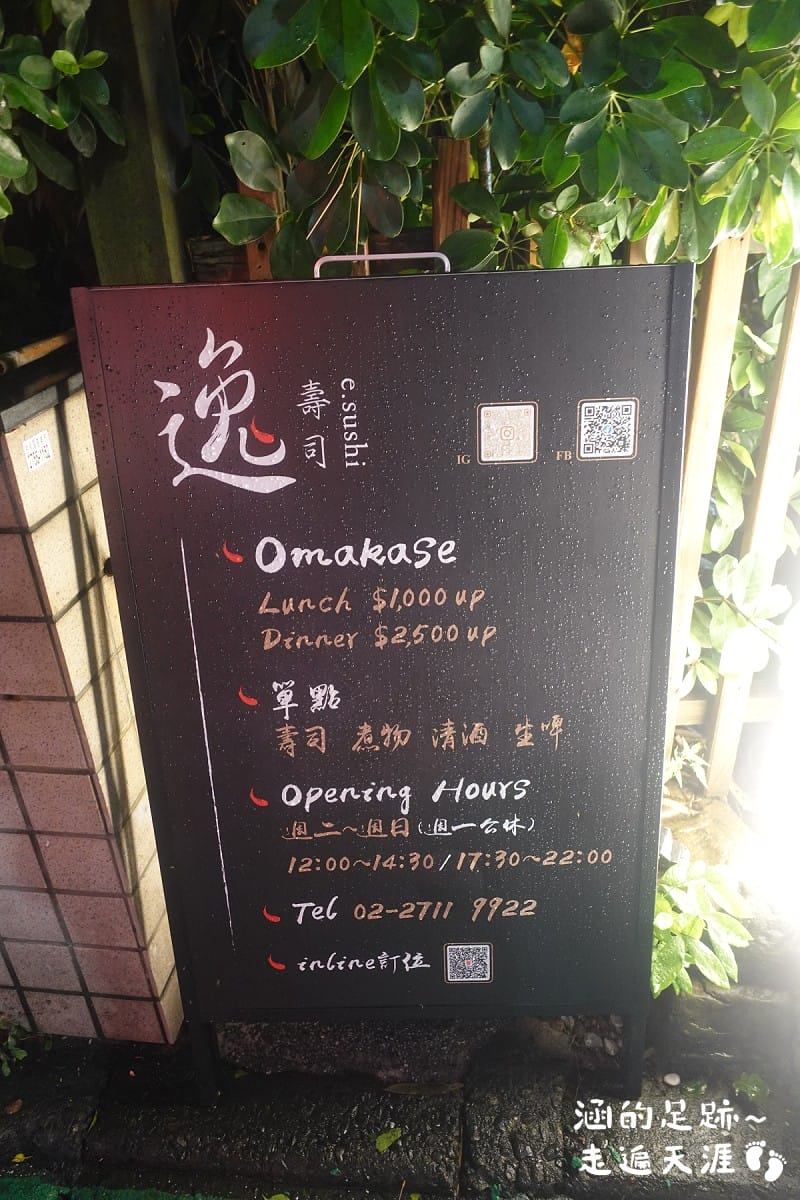 逸
壽司
e.sushi
IG
FB
Omakase
Lunch $1,000 up
Dinner $2,500 up
單點
壽司 煮物 清酒 生啤
Opening Hours
週二~週日(週一公休)
12:00~14:30/17:30~22:00
Tel 02-2711 9922
inline訂位
涵的足跡~
走遍天涯